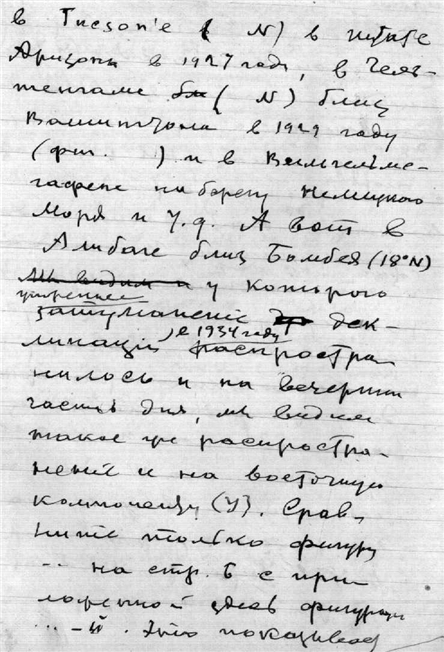 в Tucson'е ( N) в штате
Аризоны в 1927 году, в Чель-
тенгаме ( N) близ
Вашингтона в 1929 году
(фиг. ) и в Вильгельмс-
гафене на берегу Немецкого
Моря и т.д. А вот в
Алибаге близ Бомбея (18°N)
мы видим и у которого
утреннее
затуманение дек-
, в 1934 году
линации распростра-
нилось и на вечернюю
часть дня, мы видим
такое же распростра-
нение и на восточную
компоненту (Y). Срав-
ните только фигуру
.. на стр. 6 с при
ложенной здесь фигурой
...-й. Это показывает